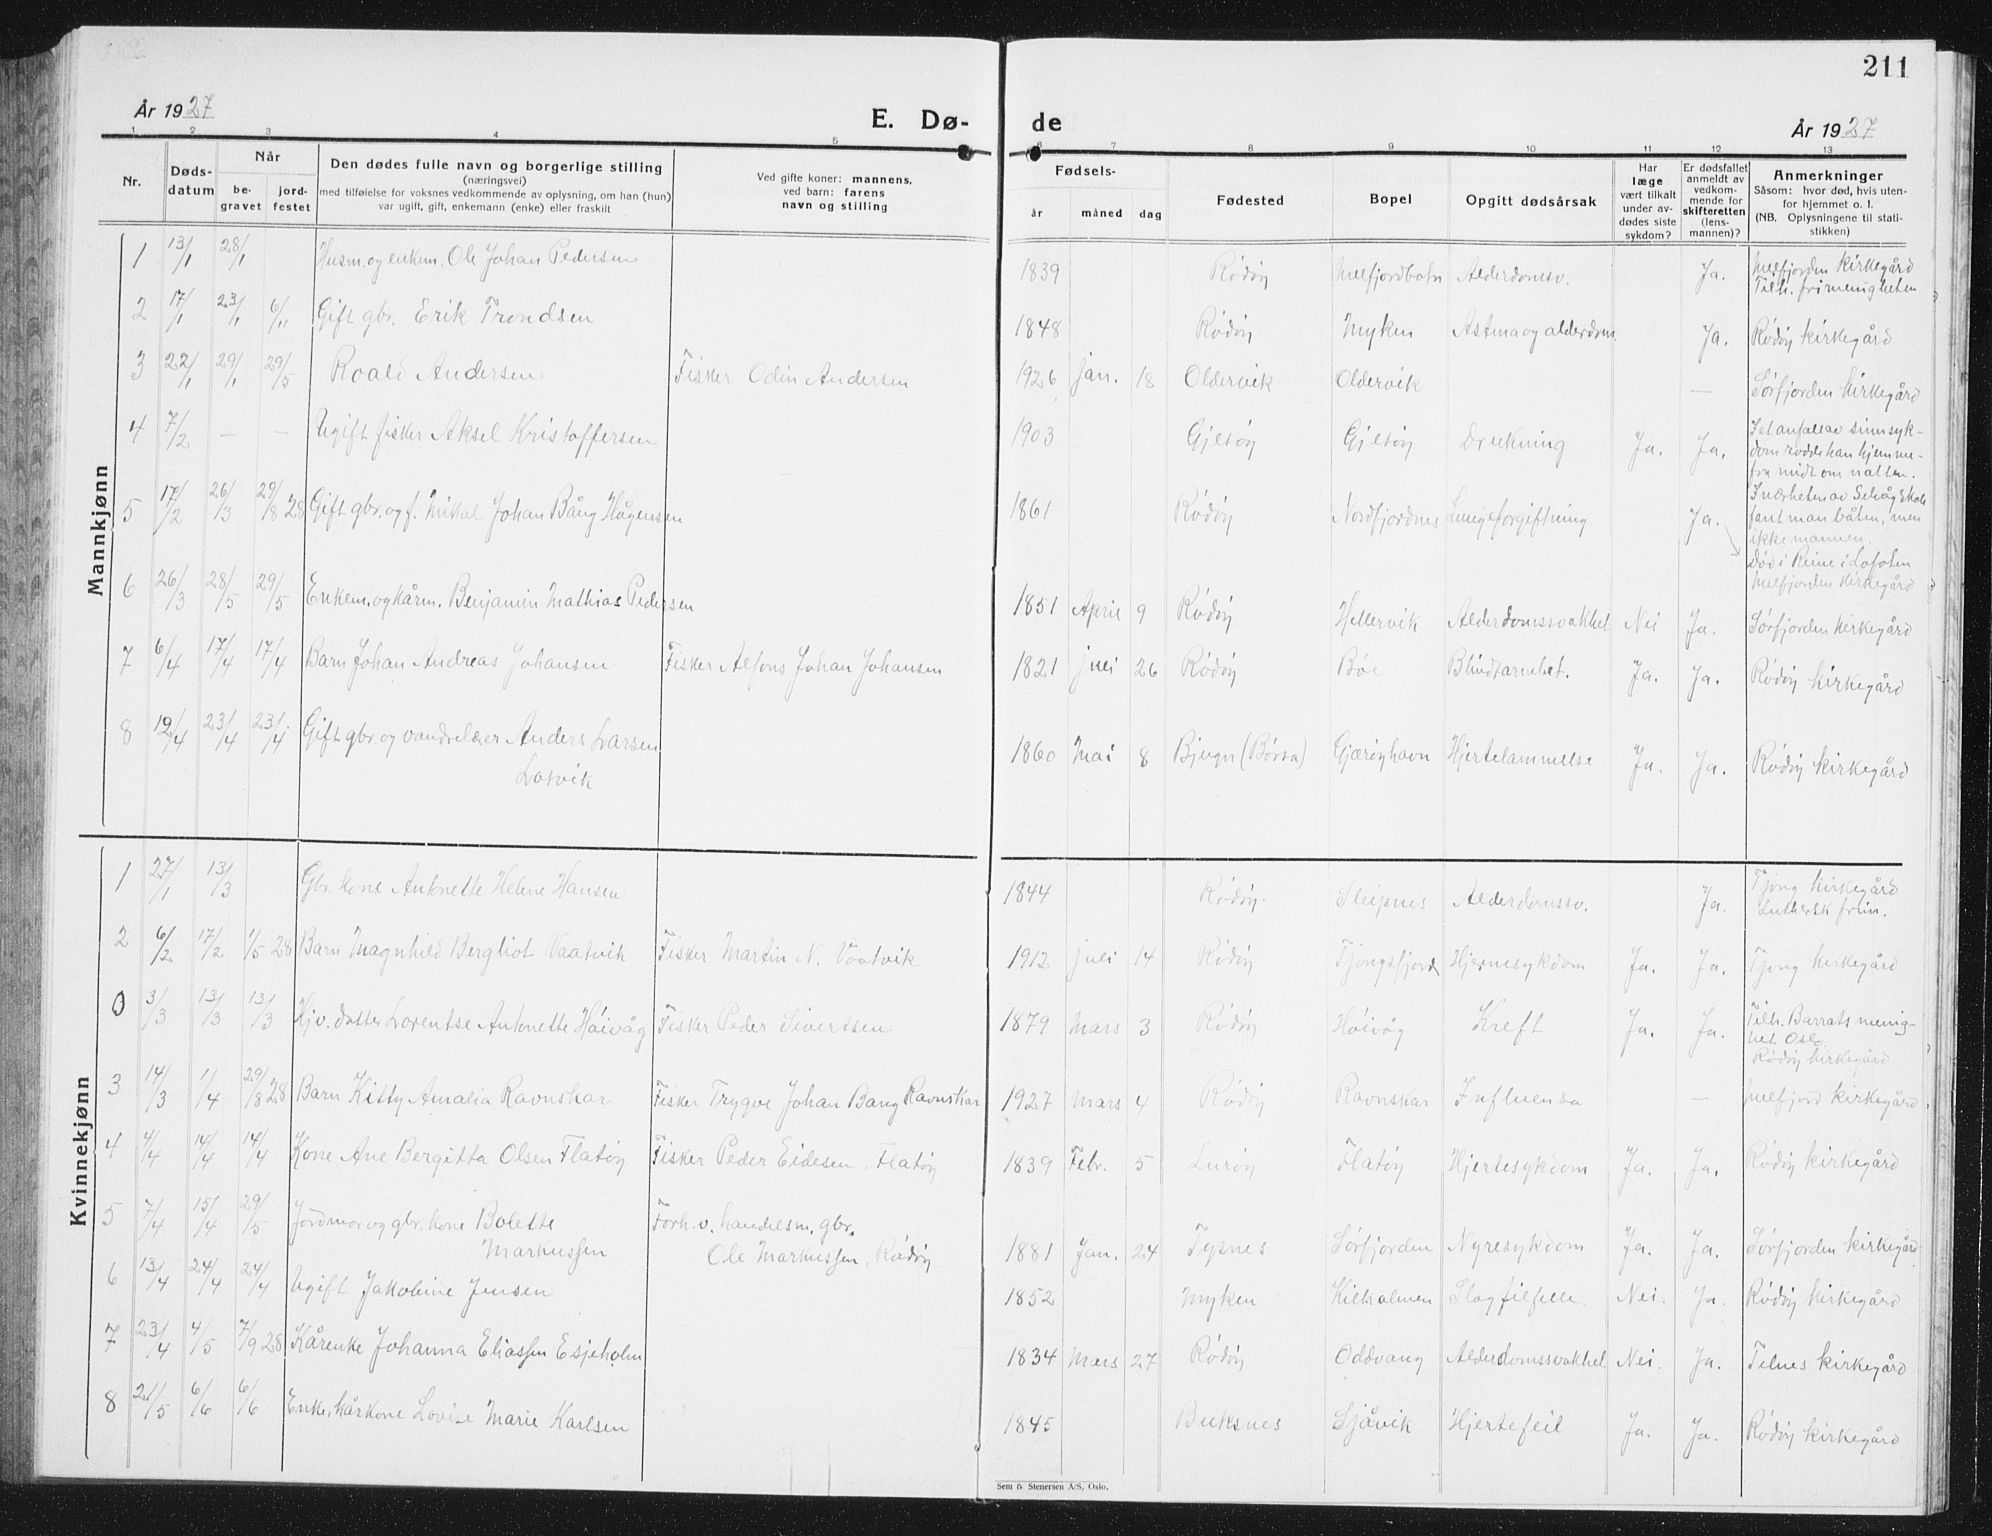 211
År 1927
E. Dø-
de
År 1927
1 2 3 4 5 6 7 8 9 10 11 12 13
Nr.
Døds-
datum
Når
be-
gravet
jord-
festet
Den dødes fulle navn og borgerlige stilling
(næringsvei)
med tilføielse for voksnes vedkommende av oplysning, om han (hun)
var ugift, gift, enkemann (enke) eller fraskilt
Ved gifte koner: mannens,
ved barn: farens
navn og stilling
Fødsels-
år måned dag
Fødested
Bopel
Opgitt dødsårsak
Har
læge
vært tilkalt
under av-
dødes siste
sykdom?
Er dødsfallet
anmeldt av
vedkom-
mende for
skifteretten
(lens-
mannen)?
Anmerkninger
Såsom: hvor død, hvis uten-
for hjemmet o. l.
(NB. Oplysningene til stati-
stikken)
Mannkjønn
1 13/1 28/1 Husm. og enkem. Ole Johan Pedersen 1839 Rødøy Melfjordbotn Alderdomsv. Ja. Melfjorden kirkegård
Tilh. frimenigheten
2 17/1 23/1 6/11 Gift gbr. Erik Trondsen 1848 Rødøy Myken Astma og alderdom. Ja. Rødøy kirkegård
3 22/1 29/1 29/5 Roald Andersen Fisker Odin Andersen 1926 jan. 18 Oldervik Oldervik — Sørfjorden kirkegård
4 7/2 — — Ugift fisker Aksel Kristoffersen 1903 Gjesøy Gjesøy Drukning Ja. Ja. I et anfall av sinnsyk-
dom rodde han hjemme-
fra midt om natten.
I nærheten av Selvåg skole
fant man båten, men
ikke mannen.
5 17/2 26/3 29/8 28 Gift gbr. og f. Mikal Johan Bång Hågensen 1861 Rødøy Nordfjordnes Lungeforgiftning Ja. Død i Reine i Lofoten
Melfjorden kirkegård
6 26/3 28/5 29/5 Enkem. og kårm. Benjamin Mathias Pedersen 1851 April 9 Rødøy Hellervik Alderdomssvakhet Nei Ja. Sørfjorden kirkegård
7 6/4 17/4 17/4 Barn Johan Andreas Johansen Fisker Alfons Johan Johansen 1821 juli 26 Rødøy Bøe Blindtarmbet. Ja. Ja. Rødøy kirkegård
8 19/4 23/4 23/4 Gift gbr. og vandrelærer Anders Larsen
Lotvik 1860 Mai 8 Bjugn (Børsa) Gjærøyhavn Hjertelammelse Ja. Ja. Rødøy kirkegård
Kvinnekjønn
1 27/1 13/3 Gbr. kone Antonette Helene Hansen 1844 Rødøy. Sleipnes Alderdomssv. Ja. Tjong kirkegård
Luthersk frim.
2 6/2 17/2 1/5 28 Barn Magnhild Bergliot Vaatvik Fisker Martin N. Våatvik 1912 juli 14 Rødøy Tjongsfjord Hjernesykdom Ja. Ja. Tjong kirkegård
0 3/3 13/3 13/3 Hjv. datter Lorentse Antonette Høivåg Fisker Peder Sivertsen 1879 Mars 3 Rødøy Høivåg Kreft Ja. Ja. Tilh. Barrats menig-
het Oslo.
Rødøy kirkegård
3 14/3 1/4 29/8 28 Barn Kitty Amalia Ravnskar Fisker Trygve Johan Bang Ravnskar 1927 Mars 4 Rødøy Ravnskar Influensa — Melfjord kirkegård
4 4/4 14/4 14/4 Kone Ane Bergitta Olsen Flatøy Fisker Peder Eidesen, Flatøy 1839 Febr. 5 Lurøy Flatøy Hjertesykdom Ja. Ja. Rødøy kirkegård
5 7/4 15/4 29/5 Jordmor og gbr. kone Bolette
Markussen Forh.v. handelsm. gbr.
Ole Markussen, Rødøy 1881 Jan. 24 Tysnes Sørfjorden Nyresykdom Ja. Ja. Sørfjorden kirkegård
6 13/4 24/4 24/4 Ugift Jakobine Jensen 1852 Myken Kilholmen Slagtilfelle. Nei. Ja. Rødøy kirkegård
7 23/4 4/5 7/9 28 Kårenke Johanna Eliassen Esjeholm 1834 Mars 27 Rødøy Oddvang Alderdomssvakhet Nei. Ja. Telnes kirkegård
8 21/5 6/6 6/6 Enke, kårkone Lovise Marie Karlsen 1845 Buksnes Sjåvik Hjertefeil Ja. Ja. Rødøy kirkegård
Sem & Stenersen A/S, Oslo.